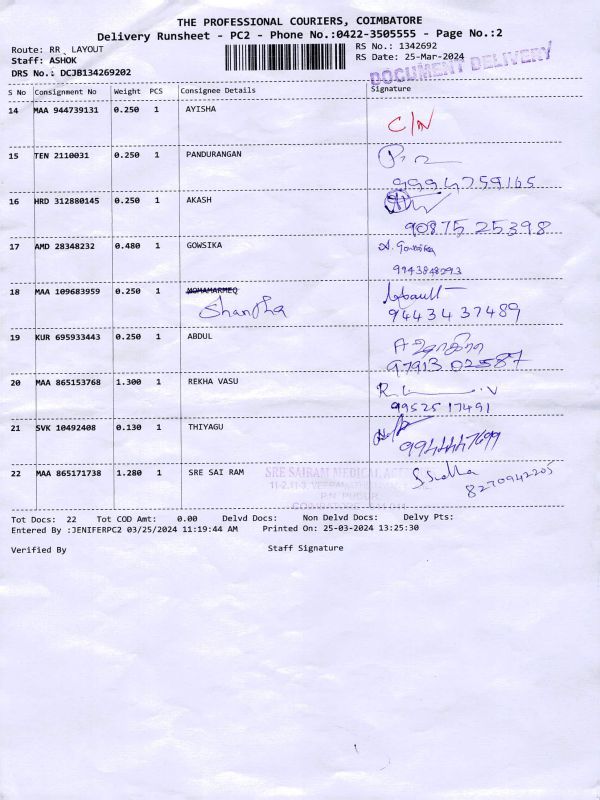 THE PROFESSIONAL COURIERS, COIMBATORE
Delivery Runsheet - PC2 - Phone No.:0422-3505555 - Page No.:2
Route: RR LAYOUT
RS No.: 1342692
Staff: ASHOK
RS Date: 25-Mar-2024
DRS No.: DCJB134269202
DOCUMENT DELIVERY
S No Consignment No Weight PCS Consignee Details Signature
14 MAA 944739131 0.250 1 AYISHA
C/N
15 TEN 2110031 0.250 1 PANDURANGAN
9994759165
16 HRD 312880145 0.250 1 AKASH
90875 25398
17 AMD 28348232 0.480 1 GOWSIKA
9943848293
18 MAA 109683959 0.250 1
Shantha
9443437489
19 KUR 695933443 0.250 1 ABDUL
97913 02587
20 MAA 865153768 1.300 1 REKHA VASU
99525 17491
21 SVK 10492408 0.130 1 THIYAGU
9944447699
22 MAA 865171738 1.280 1 SRE SAI RAM
SRE SAIRAM MEDICAL
8270942205
Tot Docs: 22 Tot COD Amt: 0.00 Delvd Docs: Non Delvd Docs: Delvy Pts:
Entered By :JENIFERPC2 03/25/2024 11:19:44 AM Printed On: 25-03-2024 13:25:30
Verified By Staff Signature